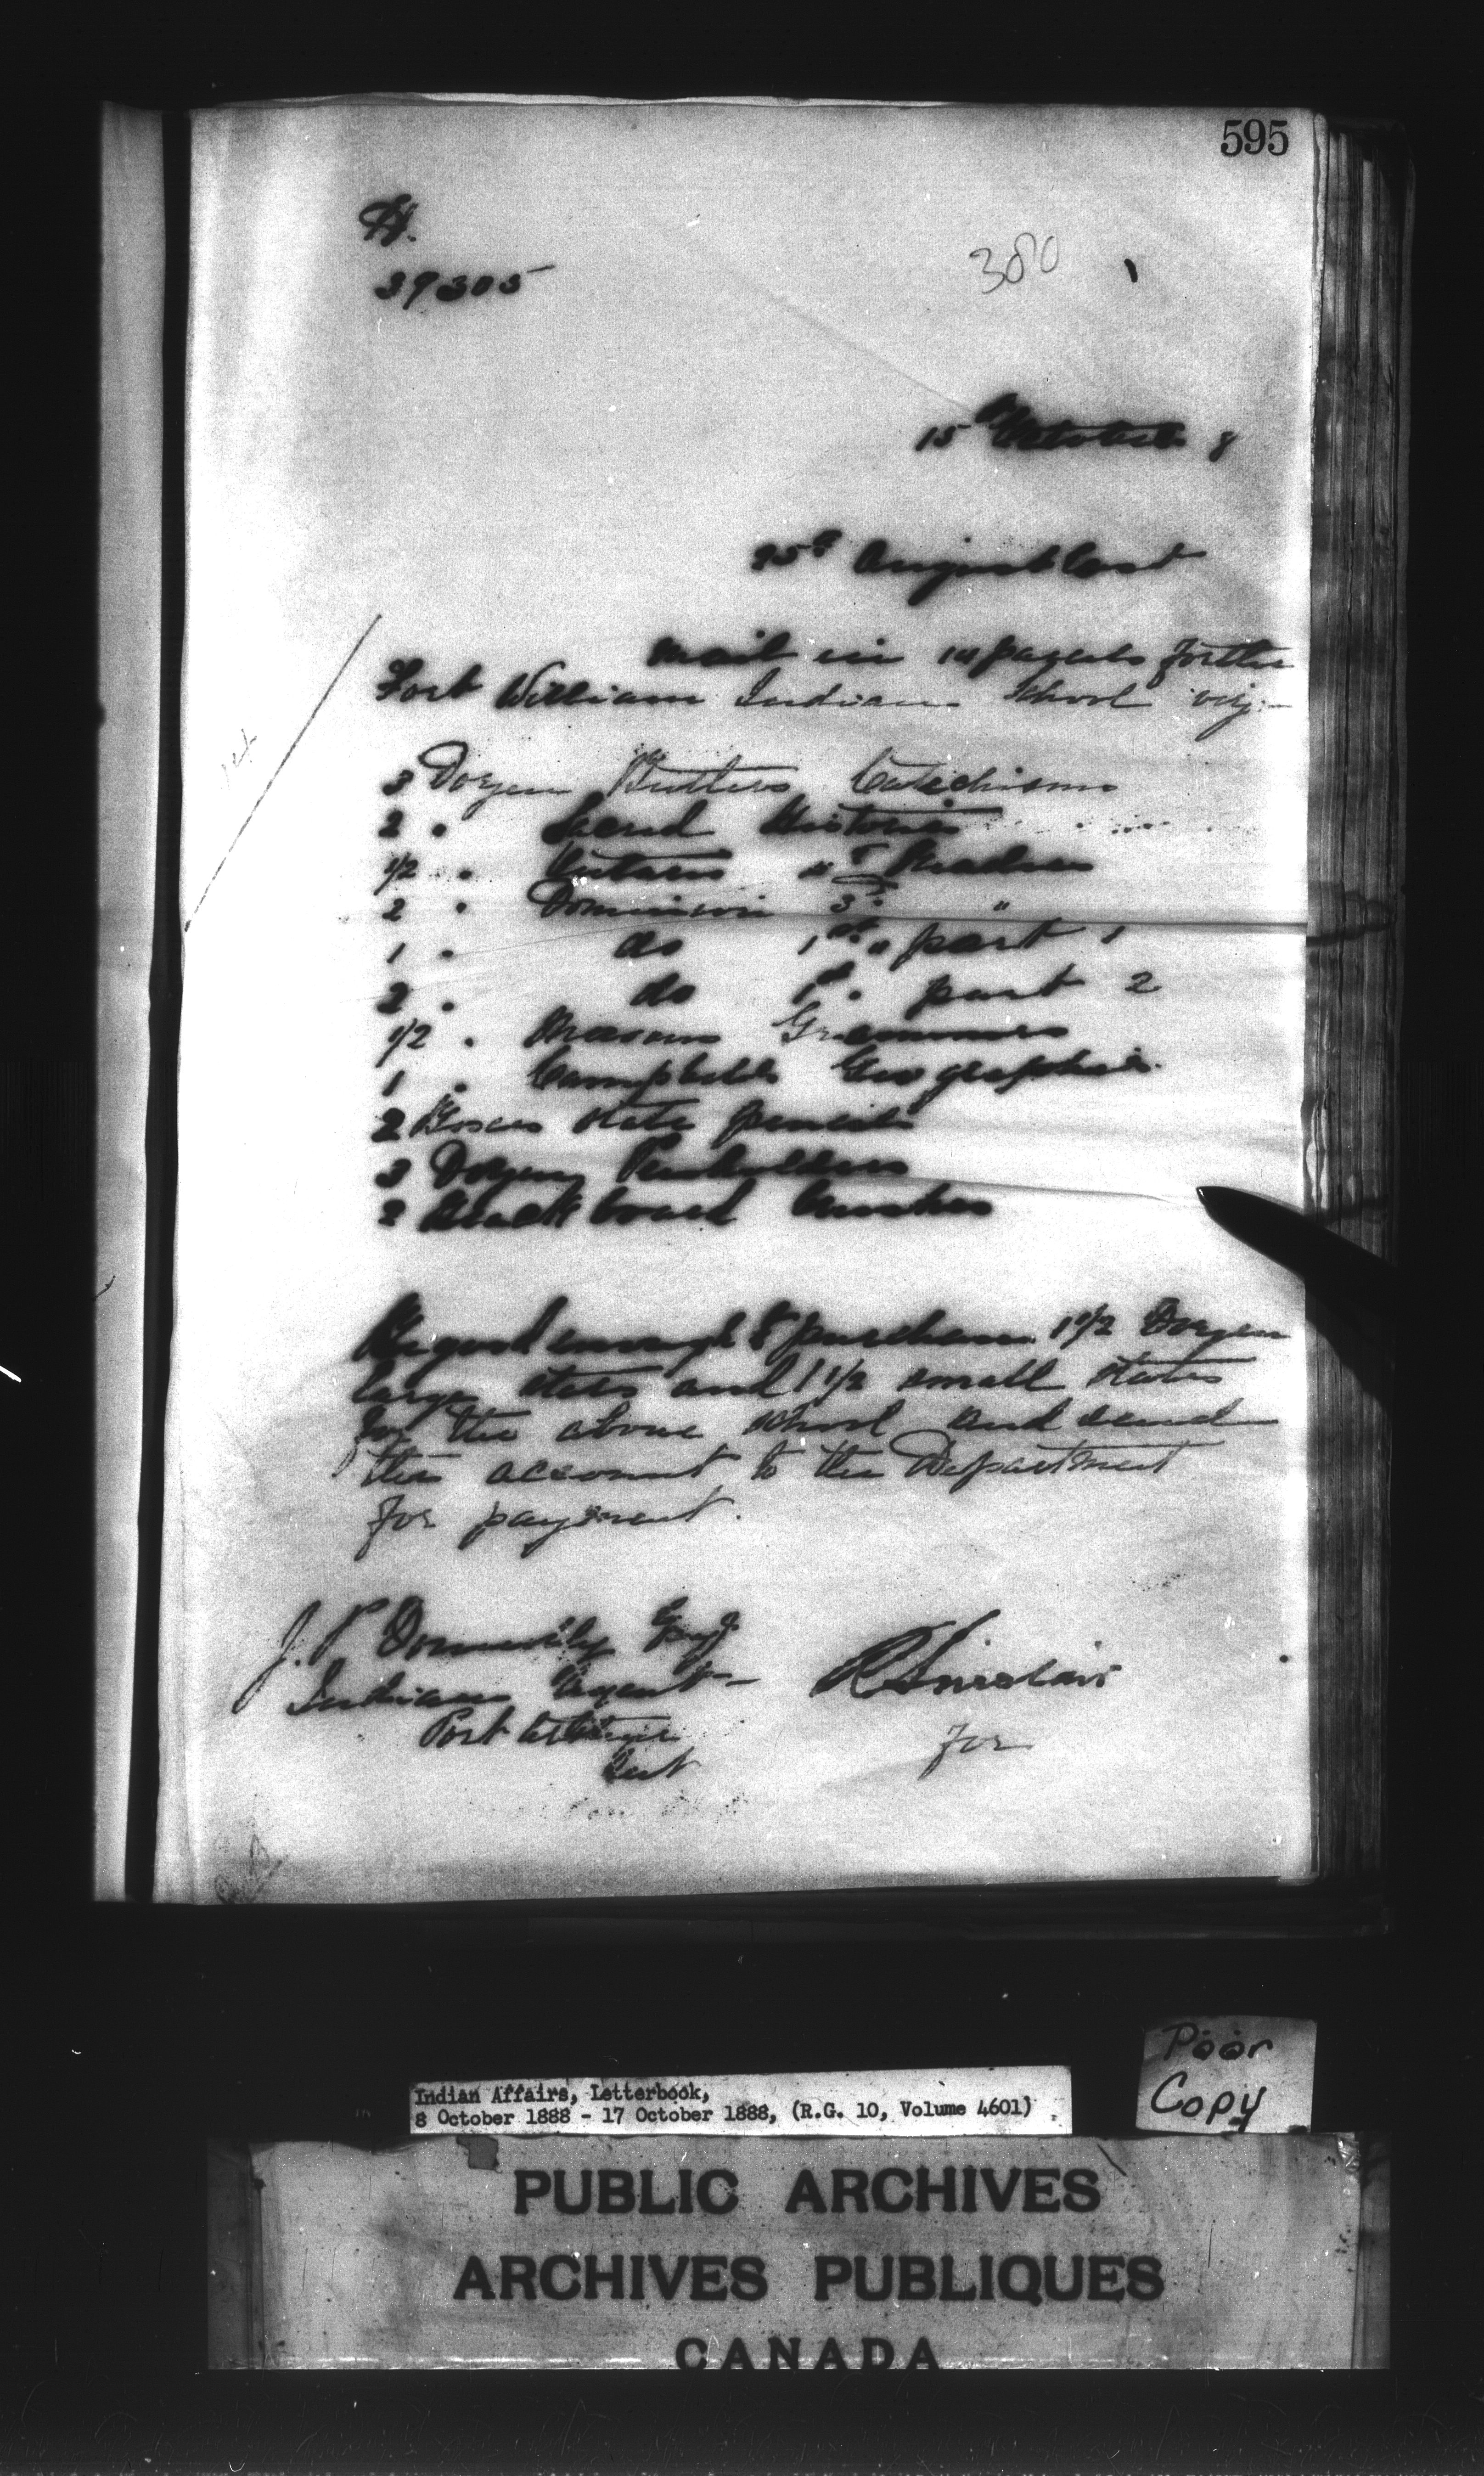 595
39305
380
15 October 8
25th August last
mail in parcels for the
Fort William Indian School viz:-
3 Dozen Butlers Catechisms
2 " Sacred Histories
1/2 " Readers
2 " Dominion 3rd "
1 " do 1st " part 1
2 " do 1st " part 2
1/2 " Masons Grammars
1 " Campbells Geographies
2 Boxes slate pencils
3 Dozen Penholders
2 Black board brushes
good enough to purchase 1 1/2 Dozen
large slates and 1 1/2 small slates
for the above school and send
the account to the Department
for payment.
J. P. Donnelly Esq
Indian Agent
Port Arthur
Ont
R Sinclair
for
Poor
Copy
Indian Affairs, Letterbook,
8 October 1888 - 17 October 1888, (R.G. 10, Volume 4601)
PUBLIC ARCHIVES
ARCHIVES PUBLIQUES
CANADA